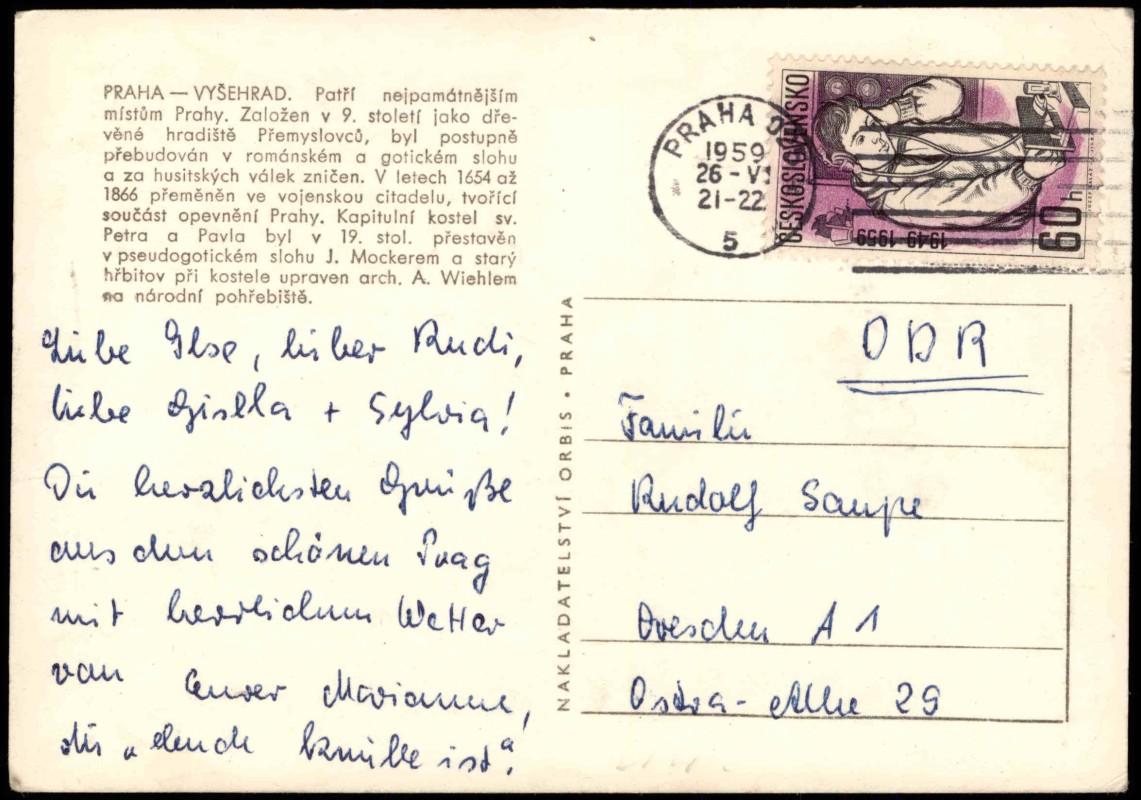 PRAHA — VYŠEHRAD. Patří nejpamátnějším
místům Prahy. Založen v 9. století jako dře-
věné hradiště Přemyslovců, byl postupně
přebudován v románském a gotickém slohu
a za husitských válek zničen. V letech 1654 až
1866 přeměněn ve vojenskou citadelu, tvořící
součást opevnění Prahy. Kapitulní kostel sv.
Petra a Pavla byl v 19. stol. přestavěn
v pseudogotickém slohu J. Mockerem a starý
hřbitov při kostele upraven arch. A. Wiehlem
na národní pohřebiště.
Liebe Ilse, lieber Rudi,
liebe Gisella + Sylvia!
Die herzlichsten Grüße
aus dem schönen Prag
mit herrlichem Wetter
von Eurer Marianne,
die „elende knülle ist“.
NAKLADATELSTVÍ ORBIS · PRAHA
PRAHA
1959
26-VI
21-22
5
ČESKOSLOVENSKO
1949-1959
60 h
DDR
Familie
Rudolf Saupe
Dresden A 1
Ostra-Allee 29